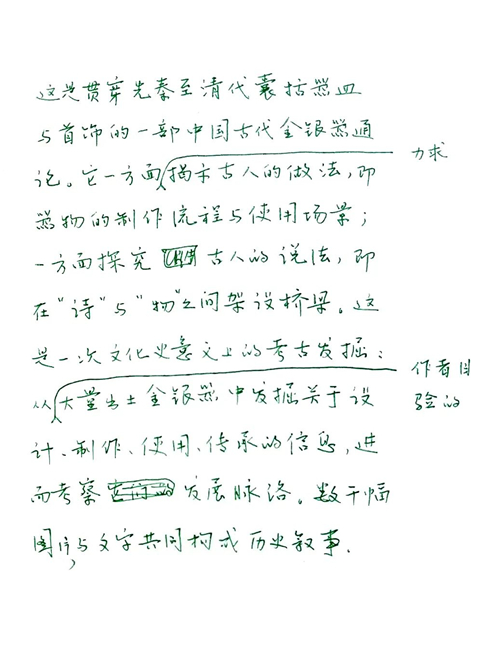 这是贯穿先秦至清代囊括器皿
与首饰的一部中国古代金银器通
论。它一方面揭示古人的做法，即
力求
器物的制作流程与使用场景；
一方面探究古人的说法，即
在“诗”与“物”之间架设桥梁。这
是一次文化史意义上的考古发掘：
从大量出土金银器中发掘关于设
作者目
验的
计、制作、使用、传承的信息，进
而考察发展脉络。数千幅
图片与文字共同构成历史叙事.